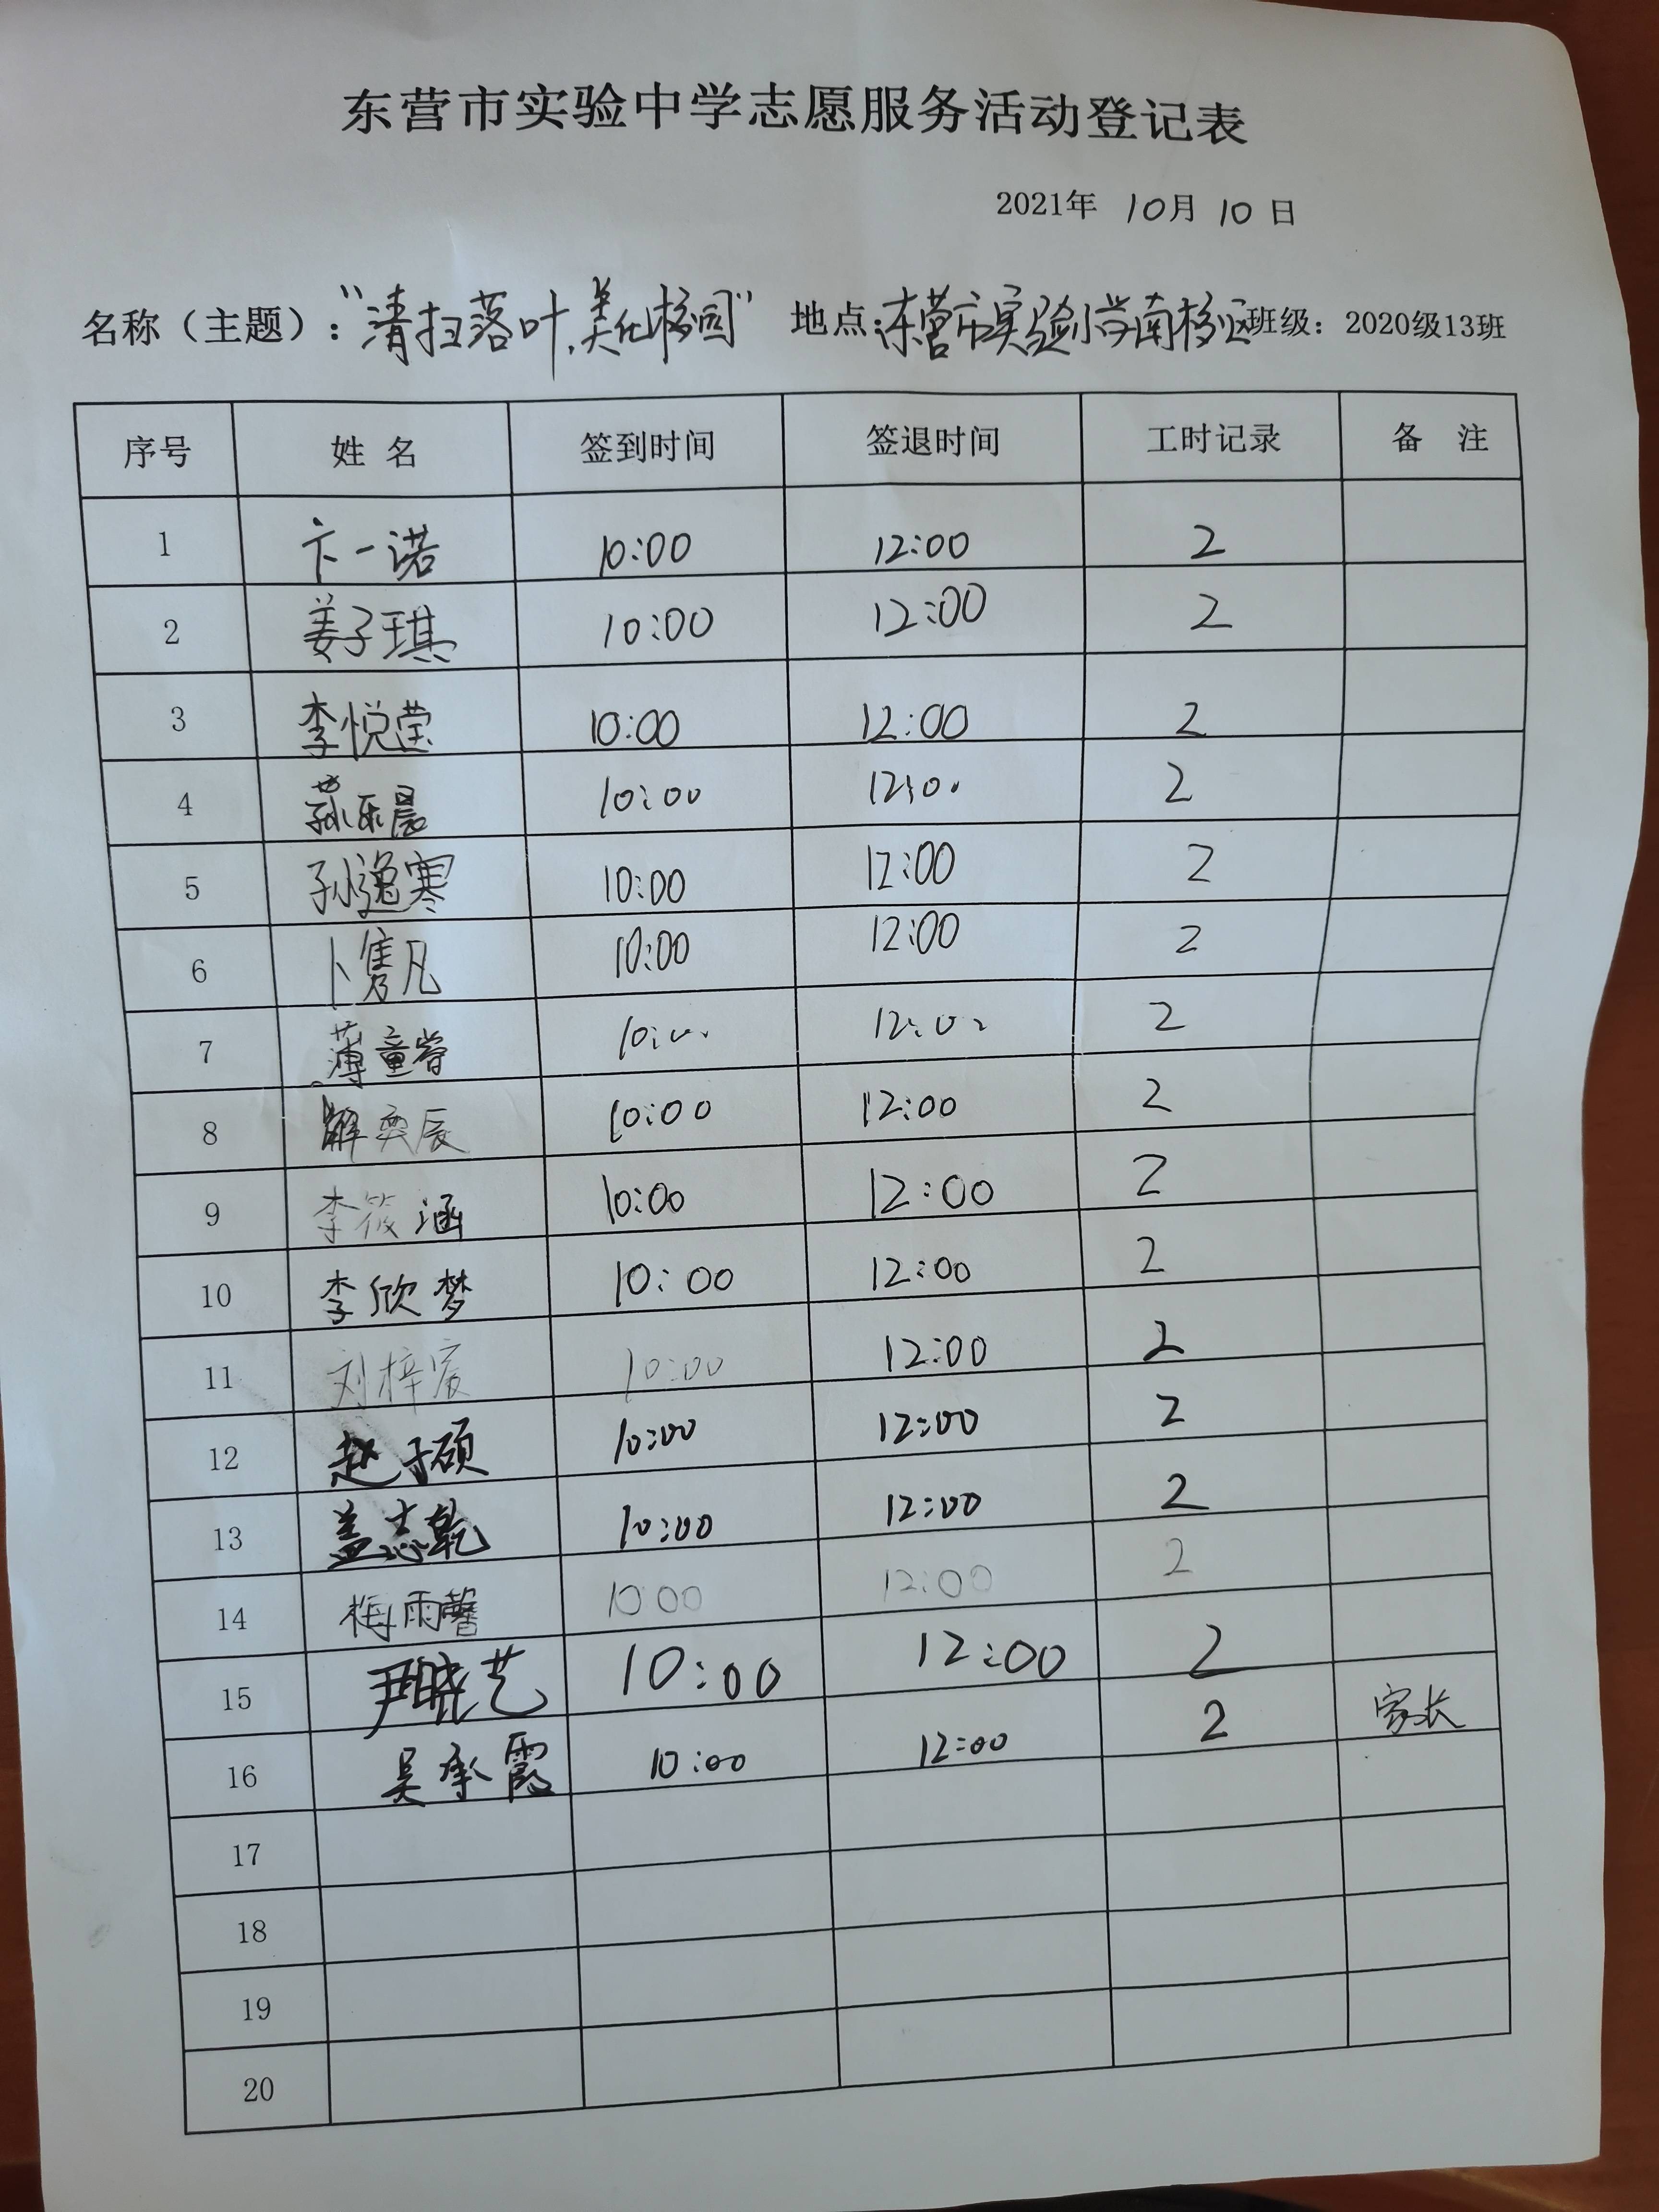 东营市实验中学志愿服务活动登记表
2021年 10月 10 日
名称（主题）："清扫落叶,美化校园" 地点:东营市实验小学南校区 班级：2020级13班
序号 姓 名 签到时间 签退时间 工时记录 备 注
1 卞一诺 10:00 12:00 2
2 姜子琪 10:00 12:00 2
3 李悦莹 10:00 12:00 2
4 10:00 12:00 2
5 孙逸寒 10:00 12:00 2
6 卜隽凡 10:00 12:00 2
7 12:00 2
8 解奕辰 10:00 12:00 2
9 李筱涵 10:00 12:00 2
10 李欣梦 10:00 12:00 2
11 刘梓宸 10:00 12:00 2
12 赵子硕 10:00 12:00 2
13 盖志乾 10:00 12:00 2
14 梅雨馨 10:00 12:00 2
15 尹晓艺 10:00 12:00 2
16 吴承霞 10:00 12:00 2 家长
17
18
19
20